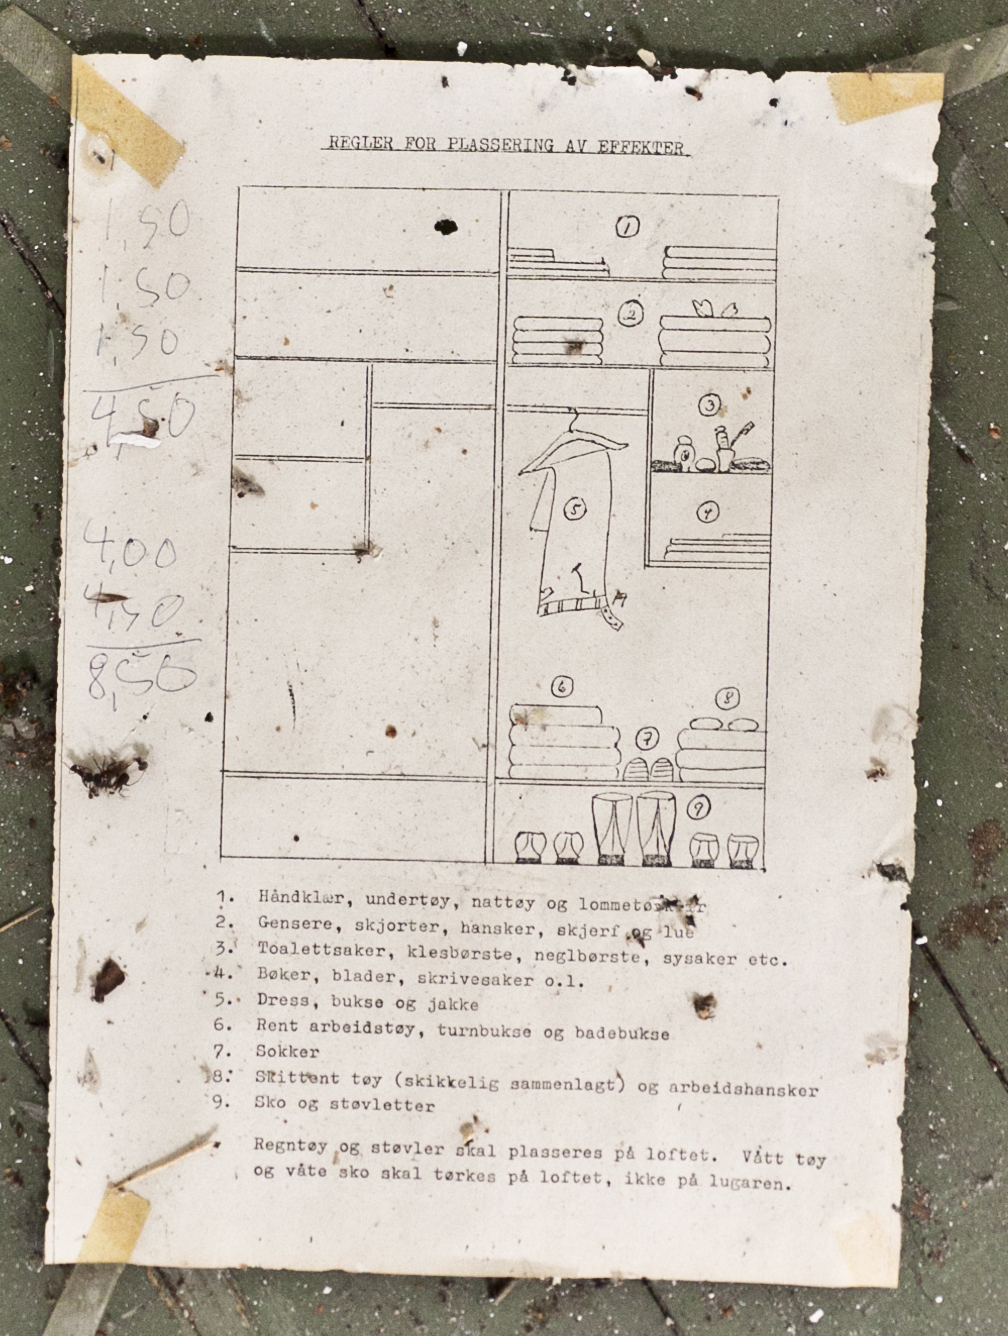 REGLER FOR PLASSERING AV EFFEKTER
1,50
1,50
1,50
4,50
4,00
4,50
8,50
1
2
3
4
5
6
7
8
9
1. Håndklær, undertøy, nattøy og lommetørklær
2. Gensere, skjorter, hansker, skjerf og lue
3. Toalettsaker, klesbørste, neglbørste, sysaker etc.
4. Bøker, blader, skrivesaker o.l.
5. Dress, bukse og jakke
6. Rent arbeidstøy, turnbukse og badebukse
7. Sokker
8. Skittent tøy (skikkelig sammenlagt) og arbeidshansker
9. Sko og støvletter
Regntøy og støvler skal plasseres på loftet. Vått tøy
og våte sko skal tørkes på loftet, ikke på lugaren.